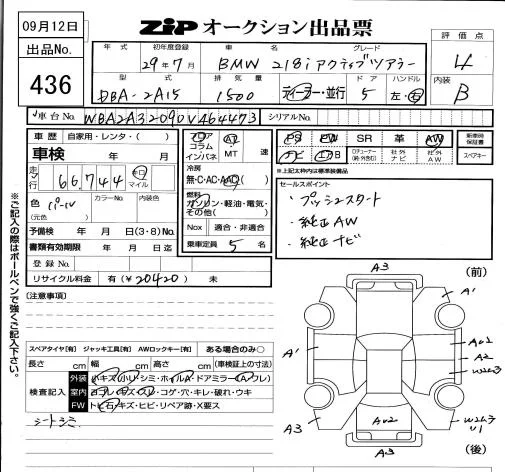 09月12日
出品No.
436
ZIP オークション出品票
評価点
4
内装
B
年式 初年度登録 車名 グレード
29年7月 BMW 218i アクティブツアラー
型式 排気量 ドア ハンドル
DBA-2A15 1500 ディーラー・並行 5 左・右
車台No. WBA2A32090V464473 シリアルNo.
車歴 自家用・レンタ・( )
車検 年 月
走行 66,744 キロ マイル
色 パール
(元色)
カラーNo. 内装色
予備検 年 月 日(3・8)もの
書類有効期限 年 月 日迄
登録No.
リサイクル料金 有(¥20420) 未
フロア
コラム
インパネ
AT
MT
速
冷房
無・C・AC・AAC
燃料
ガソリン・軽油・電気・
その他( )
Nox 適合・非適合
乗車定員 5 名
PS PW SR 革 AW
ナビ エアB
社外ナビ
社外AW
新車時保証書
スペアキー
※上記太枠内は標準装備品
セールスポイント
・プッシュスタート
・純正AW
・純正ナビ
※ご記入の際はボールペンで強くご記入下さい。
(注意事項)
スペアタイヤ[有] ジャッキ工具[有] AWロックキー[有] ある場合のみ○
長さ cm 幅 cm 高さ cm (車検証上の寸法)
検査記入
外装 小キズ(小)・シミ・ホイルA・ドアミラー(A・フレ)
室内 ヨゴレ・キズ・スレ・コゲ・穴・キレ・破れ・ウキ
FW トビ石・キズ・ヒビ・リペア跡・X要ス
シートシミ
(前)
A3
A'
A'
AU2
A2
W2U3
A3
AU2
W2U3
U1
A3
(後)